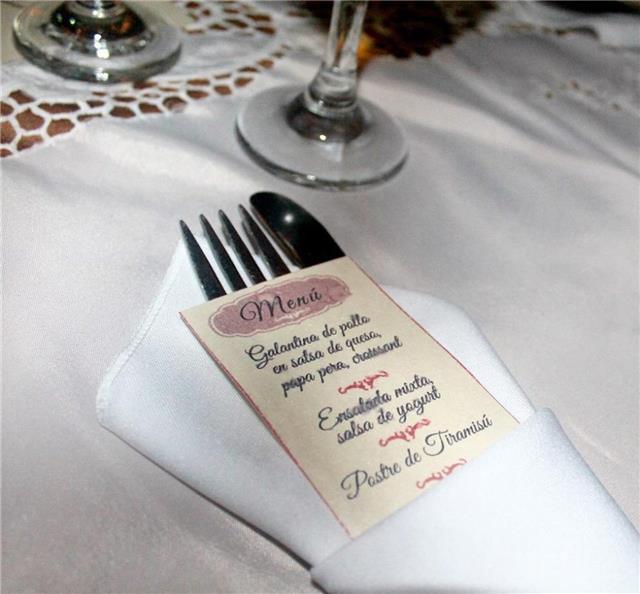 Menú
Galantina de pollo
en salsa de queso,
papa pera, croissant
Ensalada mixta,
salsa de yogurt
Postre de Tiramisú